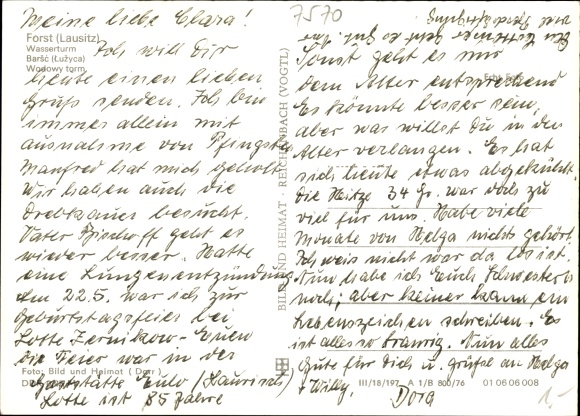 Meine liebe Clara!
Forst (Lausitz)
Wasserturm
Baršć (Łužyca)
Wodowy torm
Ich will Dir
heute einen lieben
Gruß senden. Ich bin
immer allein mit
ausnahme von Pfingsten
Manfred hat mich geholt.
Wir haben auch die
Drebkauer besucht.
Vater Bischoff geht es
wieder besser. Hatte
eine Lungenentzündung
Am 22.5. war ich zur
Geburtstagsfeier bei
Lotte Zernikow-Euen
Die Feier war in der
Foto: Bild und Heimat (Darr)
Gaststätte Eulo
Lotte ist 85 Jahre
BILD UND HEIMAT · REICHENBACH (VOGTL)
7570
Sonst geht es mir
dem Alter entsprechend
Es könnte besser sein,
aber was willst Du in den
Alter verlangen. Es hat
sich heute etwas abgekühlt.
Die Hitze 34 Gr. war doch zu
viel für uns. Habe viele
Monate von Helga nichts gehört
Ich weis nicht was da los ist.
Nun habe ich Euch Schwestern
noch; aber keiner kann ein
Lebenszeichen schreiben. Es
ist alles so traurig. Nun alles
Gute für Dich u. grüße an Helga
+ Willy. Dora
III/18/197 A 1/B 800/76 01 06 06 008
1,-